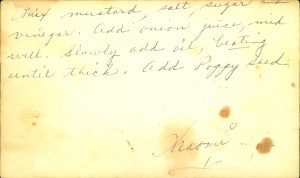 Mix mustard, salt, sugar in
vinegar. Add onion juice, mix
well. Slowly add oil, beating
until thick. Add Poppy seed
Naomi